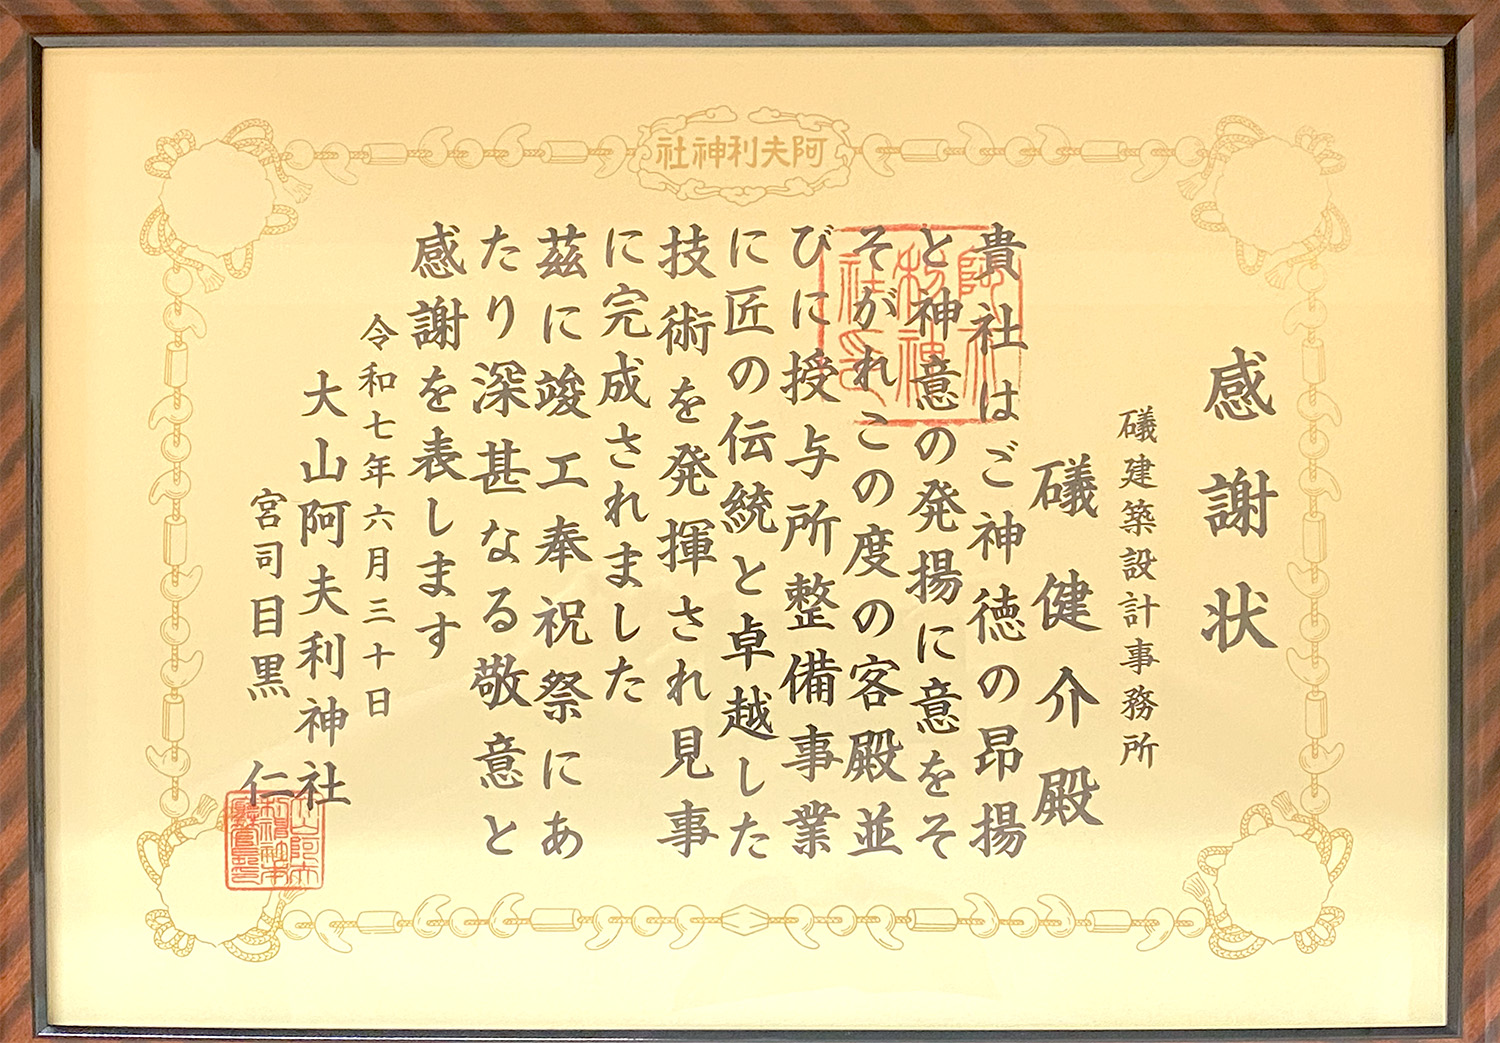 阿夫利神社
感謝状
礒建築設計事務所
礒健介殿
貴社はご神徳の昂揚
と神意の発揚に意をそ
そがれこの度の客殿並
びに授与所整備事業
に匠の伝統と卓越した
技術を発揮され見事
に完成されました
茲に竣工奉祝祭にあ
たり深甚なる敬意と
感謝を表します
令和七年六月三十日
大山阿夫利神社
宮司目黒 仁